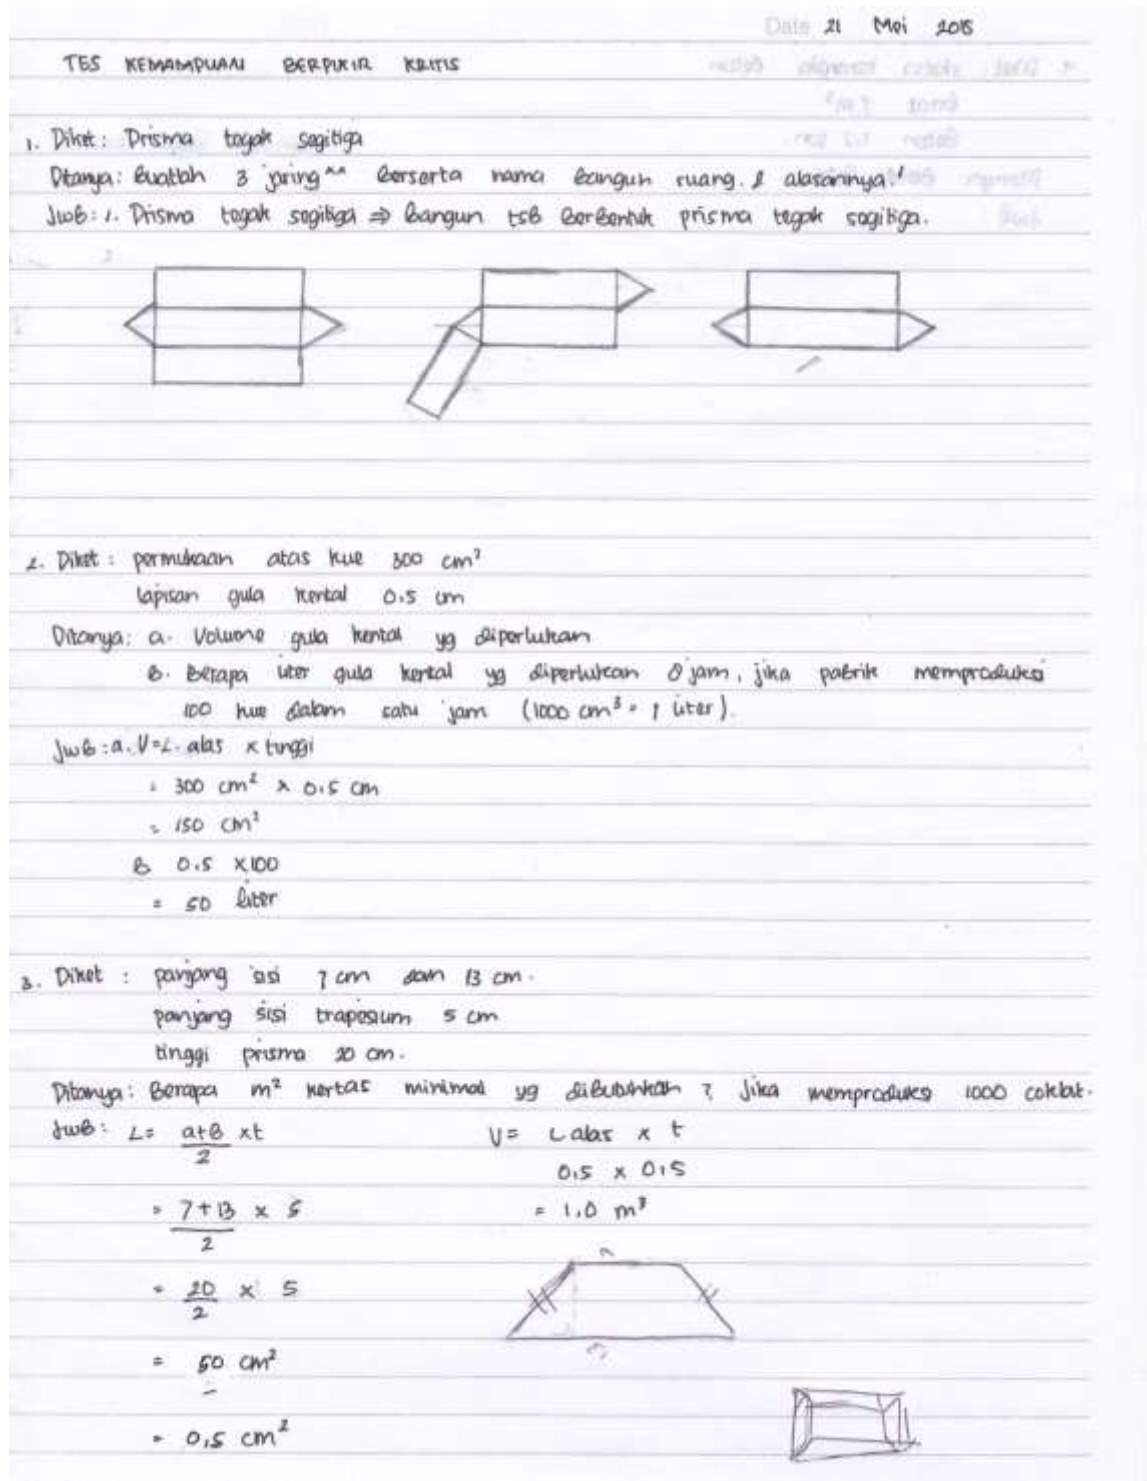 Date 21 Mei 2015
TES KEMAMPUAN BERPIKIR KRITIS
1. Diket : Prisma tegak segitiga
Ditanya : Buatlah 3 jaring^^ berserta nama bangun ruang & alasannya!
Jwb : 1. Prisma tegak segitiga ⇒ bangun tsb berbentuk prisma tegak segitiga.
2. Diket : permukaan atas kue 300 cm²
lapisan gula kental 0.5 cm
Ditanya : a. Volume gula kental yg diperlukan
B. Berapa liter gula kental yg diperlukan 8 jam, jika pabrik memproduksi
100 kue dalam satu jam (1000 cm³ = 1 liter).
Jwb : a. V = L. alas x tinggi
= 300 cm² x 0.5 cm
= 150 cm²
B 0.5 x 100
= 50 liter
3. Diket : panjang sisi 7 cm dan 13 cm.
panjang sisi trapesium 5 cm
tinggi prisma 20 cm.
Ditanya : Berapa m² kertas minimal yg dibutuhkan ? Jika memproduksi 1000 coklat.
Jwb : L = a+B/2 x t V = L alas x t
0.5 x 0.5
= 7+13/2 x 5 = 1.0 m³
= 20/2 x 5
= 50 cm²
= 0,5 cm²